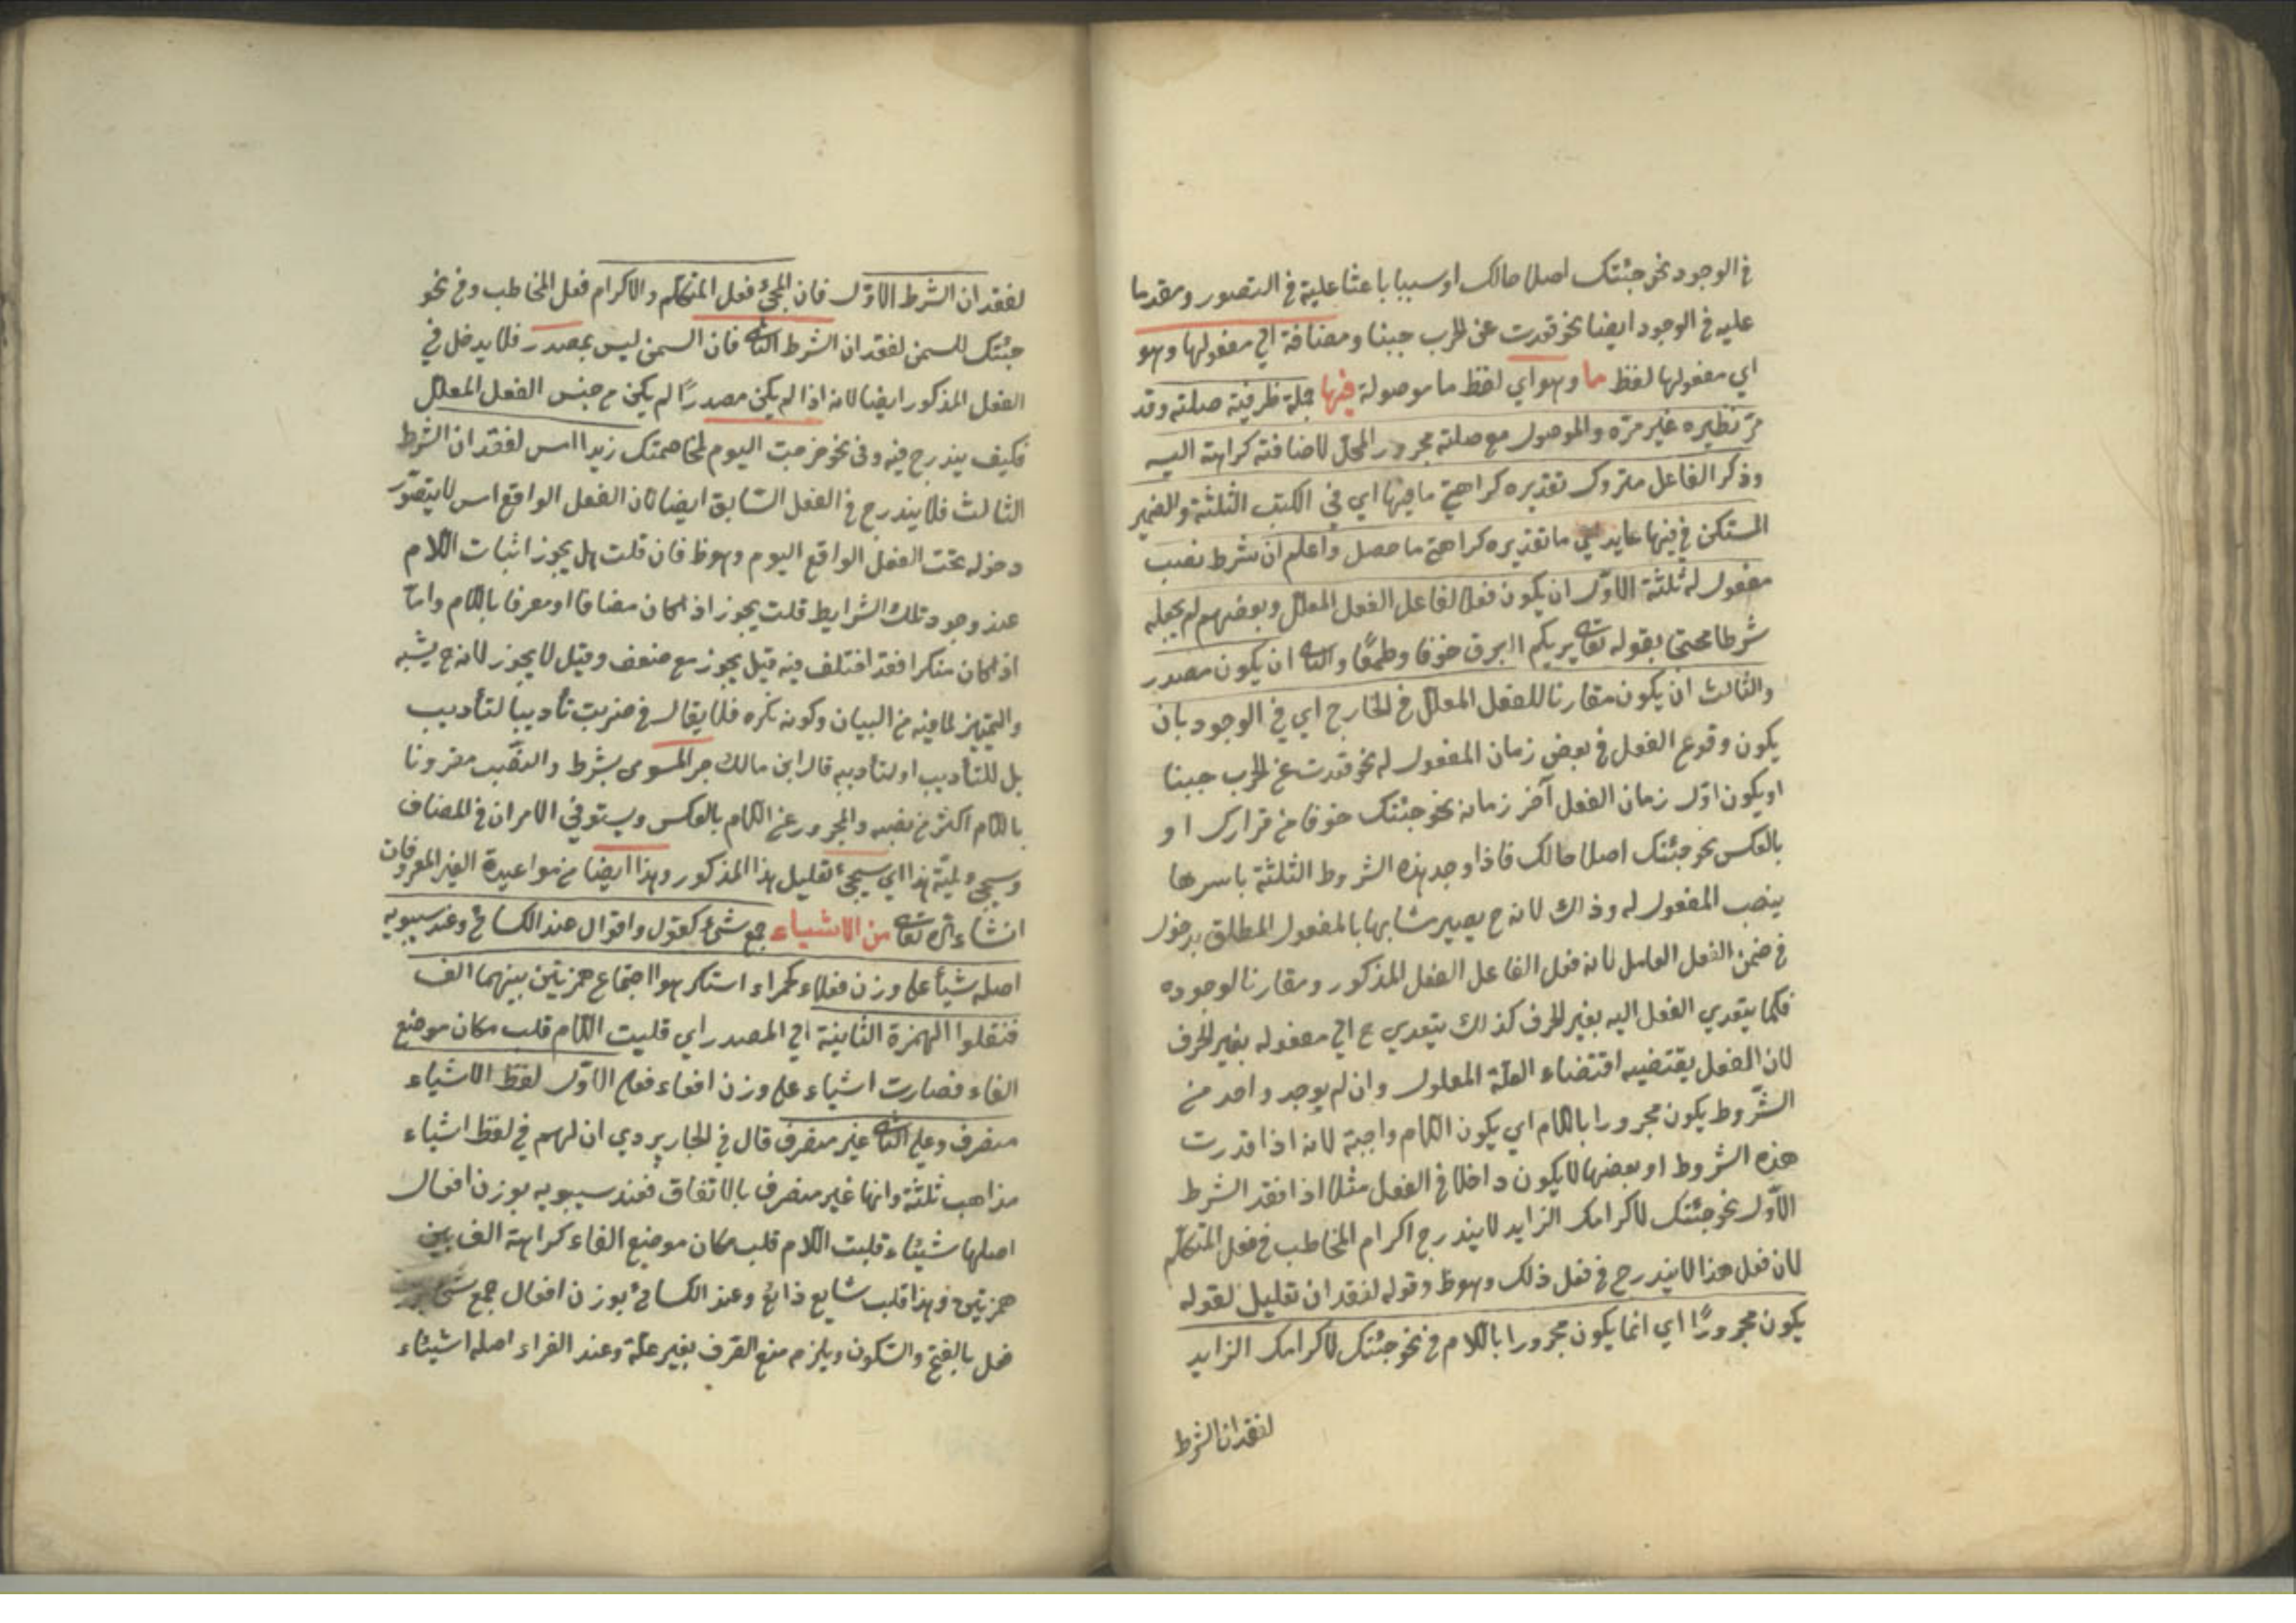 في الوجود نحو جئتك اصلاحا لك او سببا باعثا عليه في التصور ومقدما
عليه في الوجود ايضا نحو قعدت عن الحرب جبنا ومضافة الي مفعولها وهو
اي مفعولها لفظ ما وهو اي لفظ ما موصولة فيها جملة ظرفية صلته وقد
مر نظيره غير مرّة والموصول مع صلته مجرور المحل لاضافة كراهة اليه
وذكر الفاعل متروك تقديره كراهتي ما فيها اي في الكتب الثلثة والضمير
المستكن في فيها عايد الي ما تقديره كراهتي ما حصل واعلم ان شرط نصب
مفعول له ثلثة الاوّل ان يكون فعلا لفاعل الفعل المعلل وبعضهم لم يجعله
شرطا محتجا بقوله تعالي يريكم البرق خوفا وطمعًا والثاني ان يكون مصدر
والثالث ان يكون مقارنا للفعل المعلل في الخارج اي في الوجود بان
يكون وقوع الفعل في بعض زمان المفعول له نحو قعدت عن الحرب جبنا
او يكون اوّل زمان الفعل آخر زمانه نحو جئتك خوفا من فرارك او
بالعكس نحو جئتك اصلاحا لك فاذا وجد هذه الشروط الثلثة باسرها
ينصب المفعول له وذاك لانه ح يصير مشابها بالمفعول المطلق بدخول
في ضمن الفعل العامل لانه فعل الفاعل الفعل المذكور ومقارنا لوجوده
فكما يتعدي الفعل اليه بغير الحرف كذلك يتعدي ح الي مفعوله بغير الحرف
لان الفعل يقتضيه اقتضاء العلّة المعلول وان لم يوجد واحد من
الشّروط يكون مجرورا باللام اي يكون اللام واجبة لانه اذا قدرت
هذه الشروط او بعضها لا يكون داخلا في الفعل مثلا اذا فقد الشرط
الاوّل نحو جئتك لاكرامك الزايد لا يندرج اكرام المخاطب في فعل المتكلّم
لان فعل هذا لا يندرج في فعل ذلك وهو ظ وقوله لفقدان تعليل لقوله
يكون مجرورًا اي انما يكون مجرورا باللام في نحو جئتك لاكرامك الزايد
لفقدان الشرط
لفقدان الشرط الاوّل فان المجئ فعل المتكلم والاكرام فعل المخاطب وفي نحو
جئتك للسمن لفقدان الشرط الثاني فان السمن ليس بمصدر فلا يدخل في
الفعل المذكور ايضا لانه اذا لم يكن مصدرًا لم يكن من جنس الفعل المعلل
فكيف يندرج فيه وفي نحو خرجت اليوم لمخاصمتك زيدا امس لفقدان الشرط
الثالث فلا يندرج في الفعل السّابق ايضا لان الفعل الواقع امس لا يتصوّر
دخوله تحت الفعل الواقع اليوم وهو ظ فان قلت هل يجوز اثبات اللام
عند وجود تلك الشرايط قلت يجوز اذا كان مضافا او معرفا باللام وامّا
اذا كان منكرا فقد اختلف فيه قيل يجوز مع ضعف وقيل لا يجوز لانه ح يشبه
والتمييز لما فيه من البيان وكونه نكره فلا يقال في ضربت تأديبا لتأديب
بل للتأديب او لتأديبه قال ابن مالك جر المستوى بشرط والنصب مقرونا
باللام اكثر من نصبه والمجرور عن اللام بالعكس ويستوفي الامران في المضاف
وسيجئ ولميّة هذا اي سيجئ تعليل هذا المذكور وهذا ايضا من مواعيده الغير المعروفات
انشاء اللّه تعالي من الاشياء جمع شئ كقول واقوال عند الكسائي وعند سيبويه
اصله شيأ علي وزن فعلاء كحمراء استكرهوا اجتماع همزتين بينهما الف
فنقلوا الهمزة الثانية الي المصدر اي قلبت اللام قلب مكان موضع
الفاء فصارت اشياء علي وزن افعاء فعلي الاوّل لفظ الاشياء
منصرف وعلي الثاني غير منصرف قال في الجاربردي ان لهم في لفظ اشياء
مذاهب ثلثة وانها غير منصرف بالاتفاق فعند سيبويه بوزن افعال
اصلها شيئاء قلبت اللام قلب مكان موضع الفاء كراهة الف بين
همزتين وهذا قلب شايع ذائع وعند الكسائي بوزن افعال جمع شئ
فعل بالفتح والسّكون ويلزم منع الصّرف بغير علّة وعند الفراء اصله اشيئاء